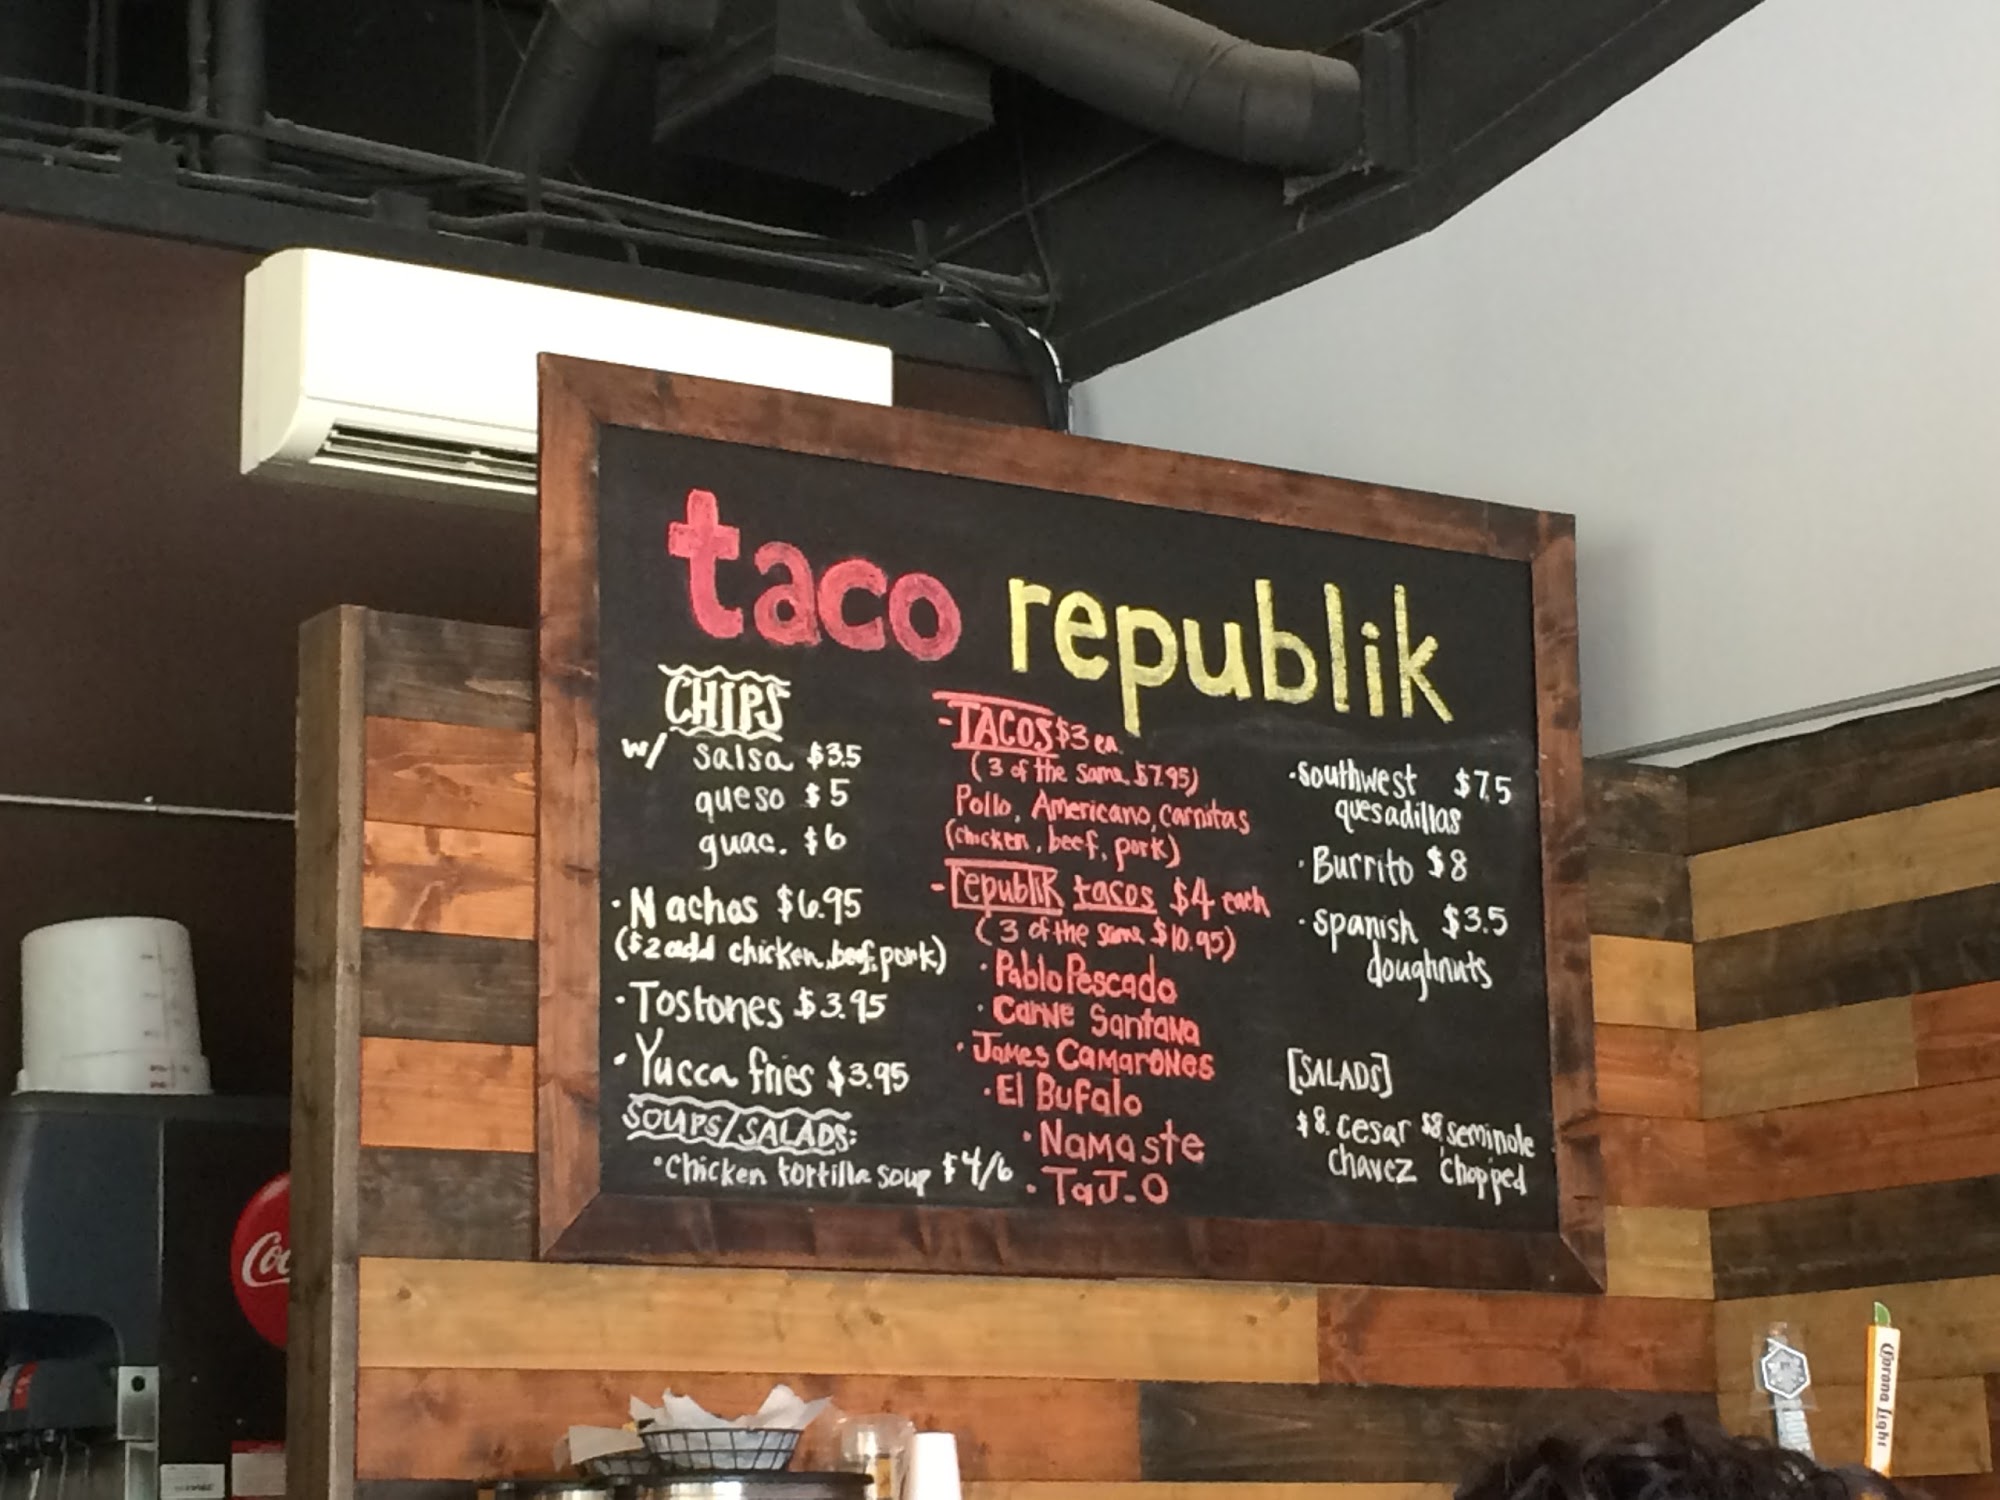 taco republik
CHIPS
w/ salsa $3.5
queso $5
guac. $6
· Nachos $6.95
($2 add chicken, beef, pork)
· Tostones $3.95
· Yucca fries $3.95
SOUPS/SALADS:
· chicken tortilla soup $4/6
- TACOS $3 ea.
(3 of the same $7.95)
Pollo, Americano, carnitas
(chicken, beef, pork)
- republik tacos $4 each
(3 of the same $10.95)
· Pablo Pescado
· Carne Santana
· James Camarones
· El Bufalo
· Namaste
· TaJ-O
· southwest $7.5
quesadillas
· Burrito $8
· spanish $3.5
doughnuts
[SALADS]
$8. cesar $8. seminole
chavez chopped
Corona Light